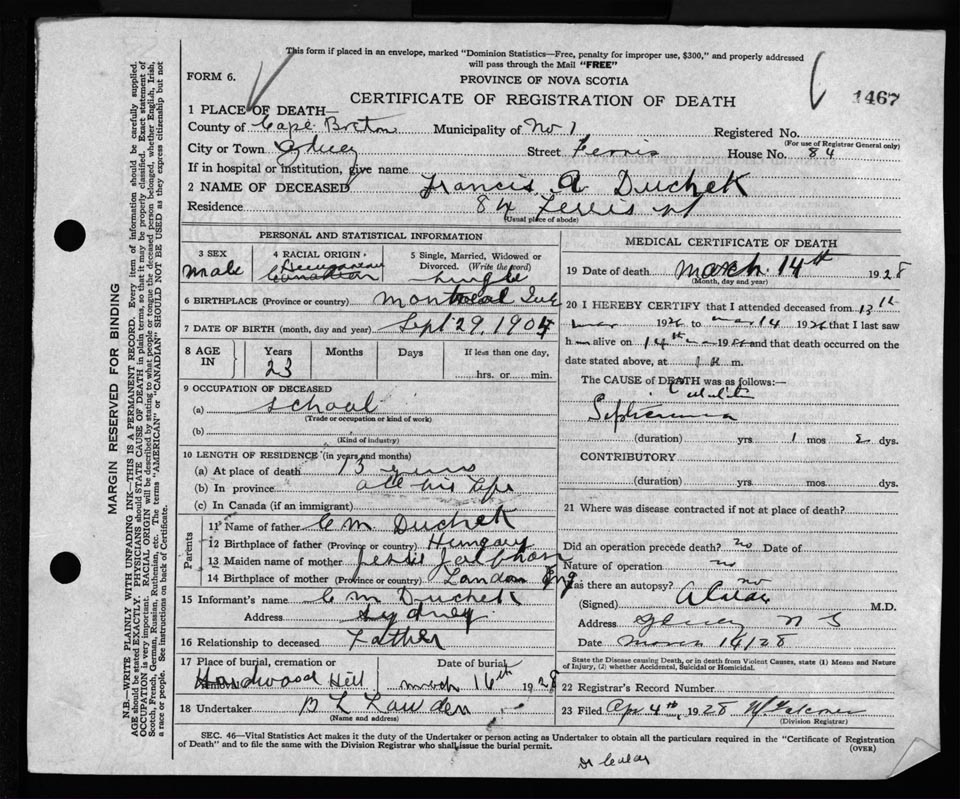 This form if placed in an envelope, marked "Dominion Statistics—Free, penalty for improper use, $300," and properly addressed
will pass through the Mail "FREE"
FORM 6.
PROVINCE OF NOVA SCOTIA
CERTIFICATE OF REGISTRATION OF DEATH
1467
1 PLACE OF DEATH—
County of Cape Breton Municipality of No 1 Registered No.
(For use of Registrar General only)
City or Town Sydney Street Ferris House No. 84
If in hospital or institution, give name
2 NAME OF DECEASED Francis A Duchek
Residence 84 Ferris St
(Usual place of abode)
PERSONAL AND STATISTICAL INFORMATION
3 SEX male
4 RACIAL ORIGIN Canadian
5 Single, Married, Widowed or Divorced. (Write the word) single
6 BIRTHPLACE (Province or country) Montreal Que
7 DATE OF BIRTH (month, day and year) Sept 29, 1904
8 AGE IN
Years Months Days If less than one day,
23 hrs. or min.
9 OCCUPATION OF DECEASED
(a) School
(Trade or occupation or kind of work)
(b)
(Kind of industry)
10 LENGTH OF RESIDENCE (in years and months)
(a) At place of death 13 years
(b) In province all his life
(c) In Canada (if an immigrant)
Parents
11 Name of father C M Duchek
12 Birthplace of father (Province or country) Hungary
13 Maiden name of mother
14 Birthplace of mother (Province or country) London Eng
15 Informant's name C M Duchek
Address Sydney
16 Relationship to deceased Father
17 Place of burial, cremation or removal Date of burial
Hardwood Hill March 16th 1928
18 Undertaker B L Lawden
(Name and address)
MEDICAL CERTIFICATE OF DEATH
19 Date of death March 14th 1928
(Month, day and year)
20 I HEREBY CERTIFY that I attended deceased from 13th
Mar 1928 to Mar 14 1928 that I last saw
h alive on 14th Mar 1928 and that death occurred on the
date stated above, at m.
The CAUSE of DEATH was as follows:—
Cellulitis
Septicemia
(duration) yrs. 1 mos 2 dys.
CONTRIBUTORY
(duration) yrs. mos. dys.
21 Where was disease contracted if not at place of death?
Did an operation precede death? no Date of
Nature of operation no
Was there an autopsy? no
(Signed) M.D.
Address Sydney N S
Date March 14/28
State the Disease causing Death, or in death from Violent Causes, state (1) Means and Nature
of Injury, (2) whether Accidental, Suicidal or Homicidal.
22 Registrar's Record Number
23 Filed Apr 4th, 1928
(Division Registrar)
SEC. 46—Vital Statistics Act makes it the duty of the Undertaker or person acting as Undertaker to obtain all the particulars required in the "Certificate of Registration
of Death" and to file the same with the Division Registrar who shall issue the burial permit.
(OVER)
MARGIN RESERVED FOR BINDING
N.B.—WRITE PLAINLY WITH UNFADING INK—THIS IS A PERMANENT RECORD. Every item of information should be carefully supplied.
AGE should be stated EXACTLY. PHYSICIANS should STATE CAUSE OF DEATH in plain terms, so that it may be properly classified. Exact statement of
OCCUPATION is very important. RACIAL ORIGIN will be described by stating to what people or tongue the deceased person belonged, whether English, Irish,
Scotch, French, German, Russian, Ruthenian, etc. The terms "AMERICAN" or "CANADIAN" SHOULD NOT BE USED as they express citizenship but not
a race or people. See instructions on back of Certificate.